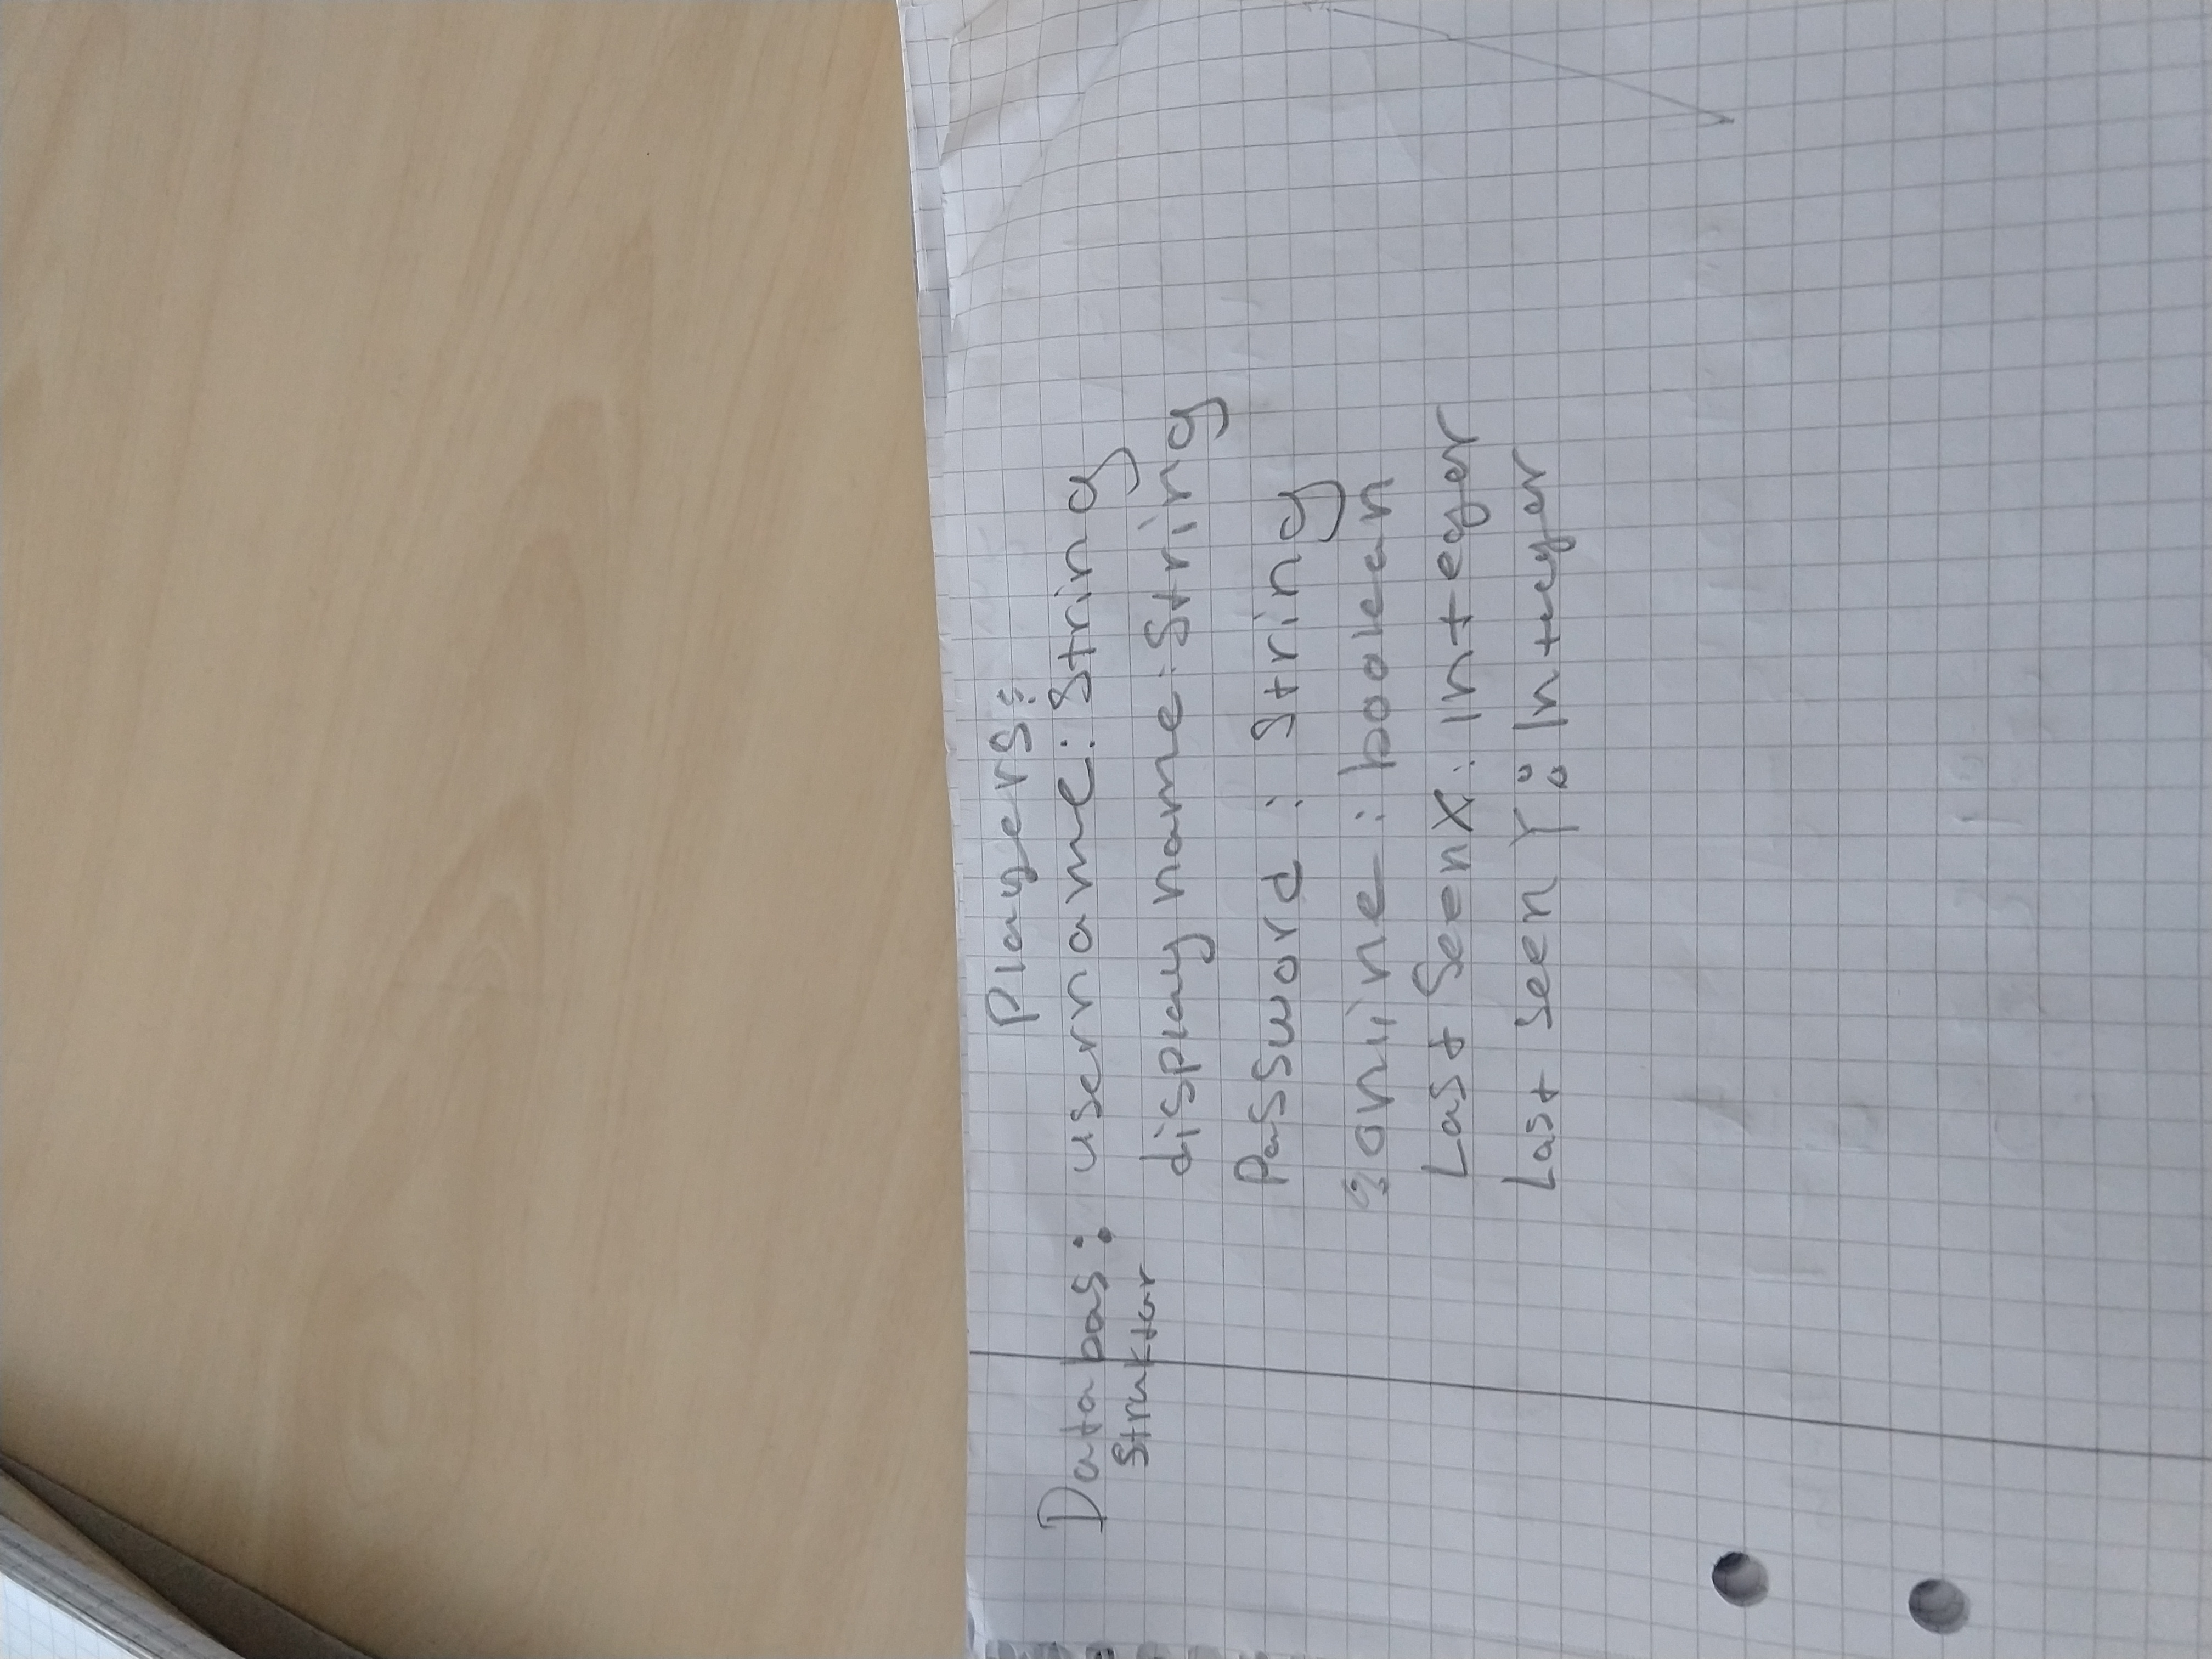 Players:
Databas: username: String
Struktur
display name: String
Password : String
online : boolean
Last Seen X: Integer
Last seen Y: Integer